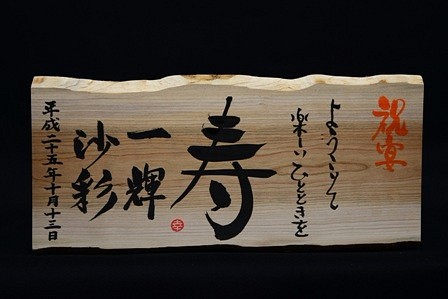 祝宴
ようこそ
楽しいひとときを
寿
一輝
沙彩
平成二十五年十月十三日
幸